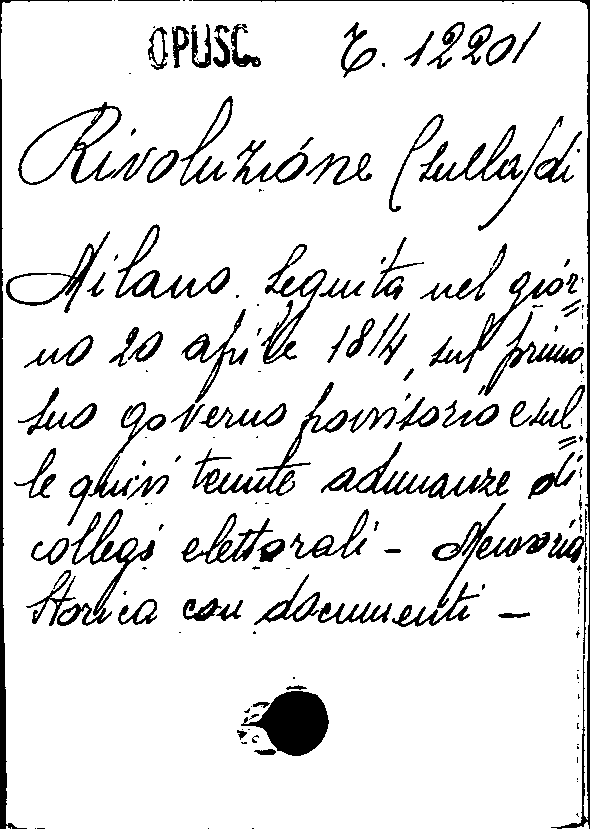 OPUSC. C. 12201
Rivoluzione (sulla) di
Milano seguita nel gior=
no 20 aprile 1814, sul primo
suo governo provvisorio e sul=
le quivi tenute adunanze di
collegi elettorali - Memoria
storica con documenti -